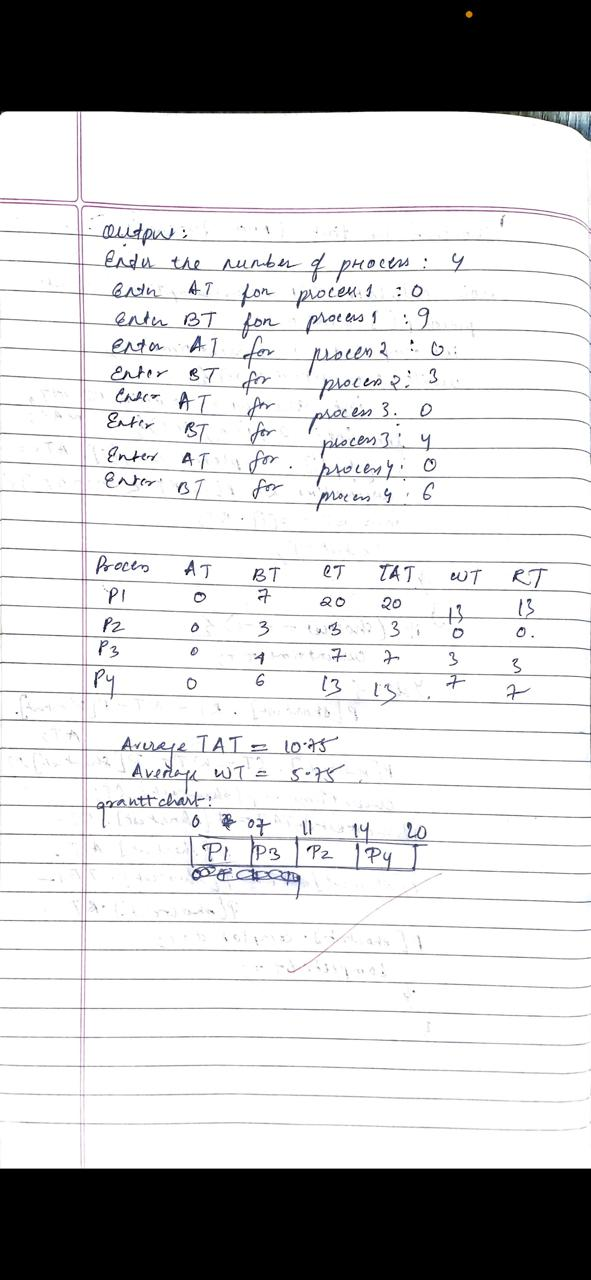 Output:
Enter the number of process : 4
Enter AT for process 1 : 0
Enter BT for process 1 : 9
Enter AT for process 2 : 0
Enter BT for process 2 : 3
Enter AT for process 3 . 0
Enter BT for process 3 : 4
Enter AT for process 4 : 0
Enter BT for process 4 : 6
Process AT BT CT TAT WT RT
P1 0 7 20 20 13 13
P2 0 3 3 3 0 0.
P3 0 4 7 7 3 3
P4 0 6 13 13 7 7
Average TAT = 10.75
Average WT = 5.75
grantt chart:
0 07 11 14 20
P1 P3 P2 P4